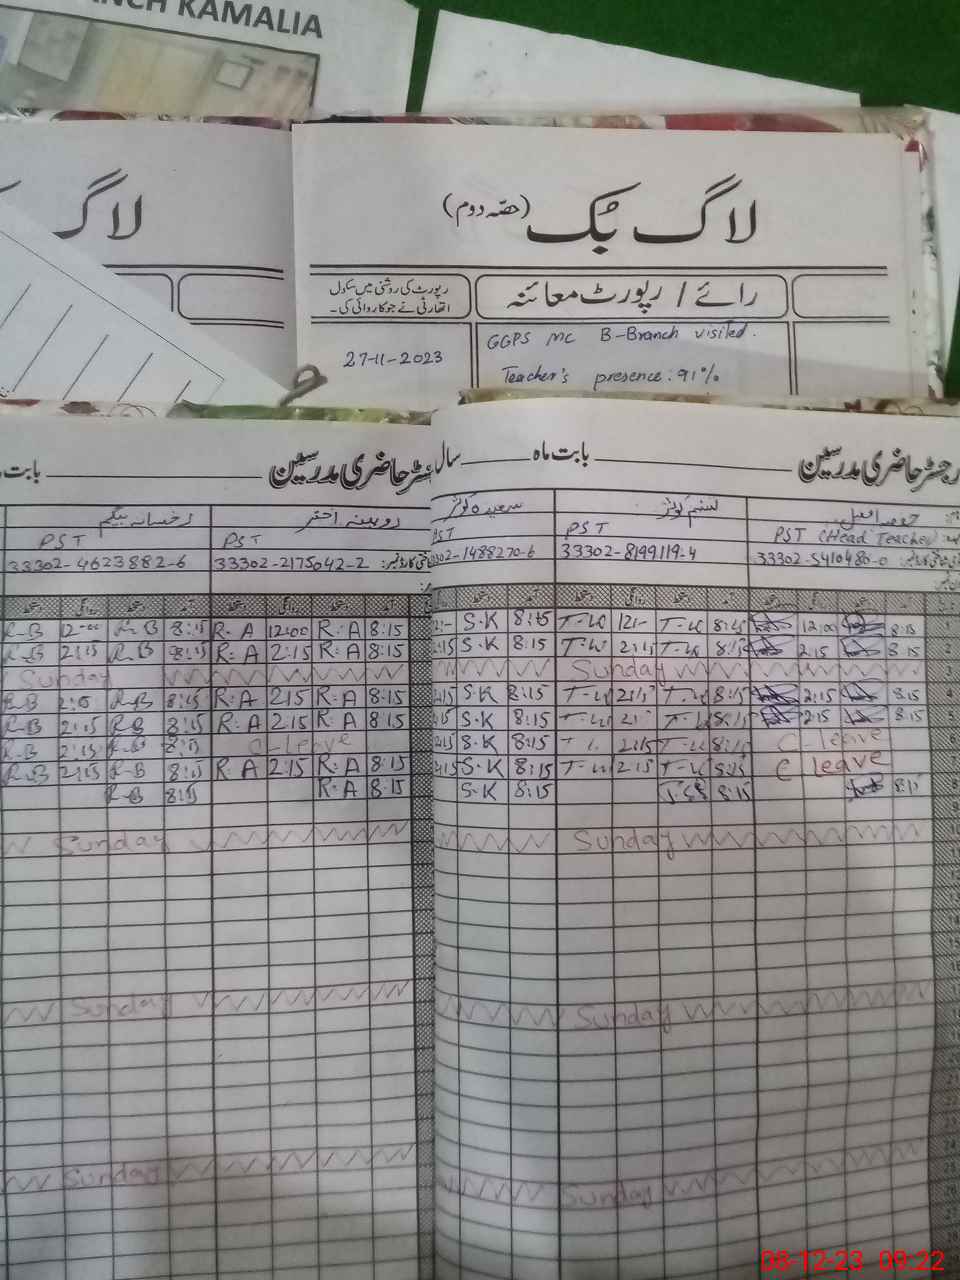 NCH KAMALIA
لاگ
لاگ بُک (حصّہ دوم)
رائے / رپورٹ معائنہ
رپورٹ کی روشنی میں سکول
اتھارٹی نے جو کاروائی کی۔
27-11-2023
GGPS MC B-Branch visited.
Teacher's presence: 91%
رجسٹر حاضری مدرسین بابت ماہ سال
PST (Head Teacher) PST PST
33302-5410480-0 33302-8199119-4 302-1488270-6
S.K 8:15 T-K 12:- T-K 8:15 12:00 8:15 1
2:15 S.K 8:15 T-K 2:15 T-K 8:15 2:15 8:15 2
Sunday
2:15 S.K 8:15 T-K 2:15 T-K 8:15 2:15 8:15 4
S.K 8:15 T-K T-K 8:15 2:15 8:15 5
2:15 S.K 8:15 2:15 T-K 8:15 C-leave
2:15 S.K 8:15 T-K 2:15 T-K 8:15 C leave
S.K 8:15 8:15 8:15
Sunday
Sunday
Sunday
رجسٹر حاضری مدرسین بابت
روبینہ اختر رخسانہ بیگم
PST PST
33302-4623882-6 33302-2175042-2
R-B 12:00 R-B 8:15 R.A 12:00 R.A 8:15
R-B 2:15 R-B 8:15 R.A 2:15 R.A 8:15
Sunday
R-B 2:15 R-B 8:15 R.A 2:15 R.A 8:15
R-B 2:15 R-B 8:15 R.A 2:15 R.A 8:15
R-B 2:15 R-B 8:15 C-leave
R-B 2:15 R-B 8:15 R.A 2:15 R.A 8:15
R-B 8:15 R.A 8:15
Sunday
Sunday
Sunday
08-12-23 09:22